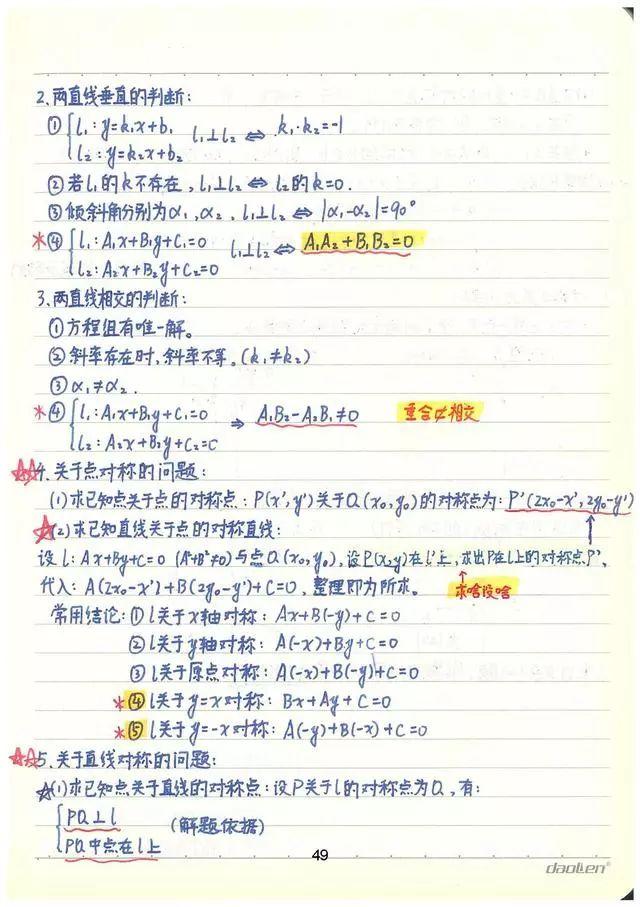 2.两直线垂直的判断:
① { l₁:y=k₁x+b₁ l₁⊥l₂ ⇔ k₁·k₂=-1
l₂:y=k₂x+b₂
②若l₁的k不存在,l₁⊥l₂ ⇔ l₂的k=0.
③倾斜角分别为α₁,α₂,l₁⊥l₂ ⇔ |α₁-α₂|=90°
*④ { l₁:A₁x+B₁y+C₁=0 l₁⊥l₂ ⇔ A₁A₂+B₁B₂=0
l₂:A₂x+B₂y+C₂=0
3.两直线相交的判断:
①方程组有唯一解。
②斜率存在时,斜率不等。(k₁≠k₂)
③α₁≠α₂.
*④ { l₁:A₁x+B₁y+C₁=0 ⇒ A₁B₂-A₂B₁≠0 重合⊄相交
l₂:A₂x+B₂y+C₂=0
☆☆4.关于点对称的问题:
(1)求已知点关于点的对称点:P(x',y')关于Q(x₀,y₀)的对称点为:P'(2x₀-x',2y₀-y')
☆(2)求已知直线关于点的对称直线:
设l:Ax+By+C=0 (A²+B²≠0)与点Q(x₀,y₀),设P(x,y)在l'上,求出P在l上的对称点P'.
代入:A(2x₀-x')+B(2y₀-y')+C=0,整理即为所求。 ↑求啥设啥
常用结论:①l关于x轴对称:Ax+B(-y)+C=0
②l关于y轴对称:A(-x)+By+C=0
③l关于原点对称:A(-x)+B(-y)+C=0
*④l关于y=x对称:Bx+Ay+C=0
*⑤l关于y=-x对称:A(-y)+B(-x)+C=0
☆☆5.关于直线对称的问题:
☆(1)求已知点关于直线的对称点:设P关于l的对称点为Q,有:
{ PQ⊥l (解题依据)
PQ中点在l上
49
daolien